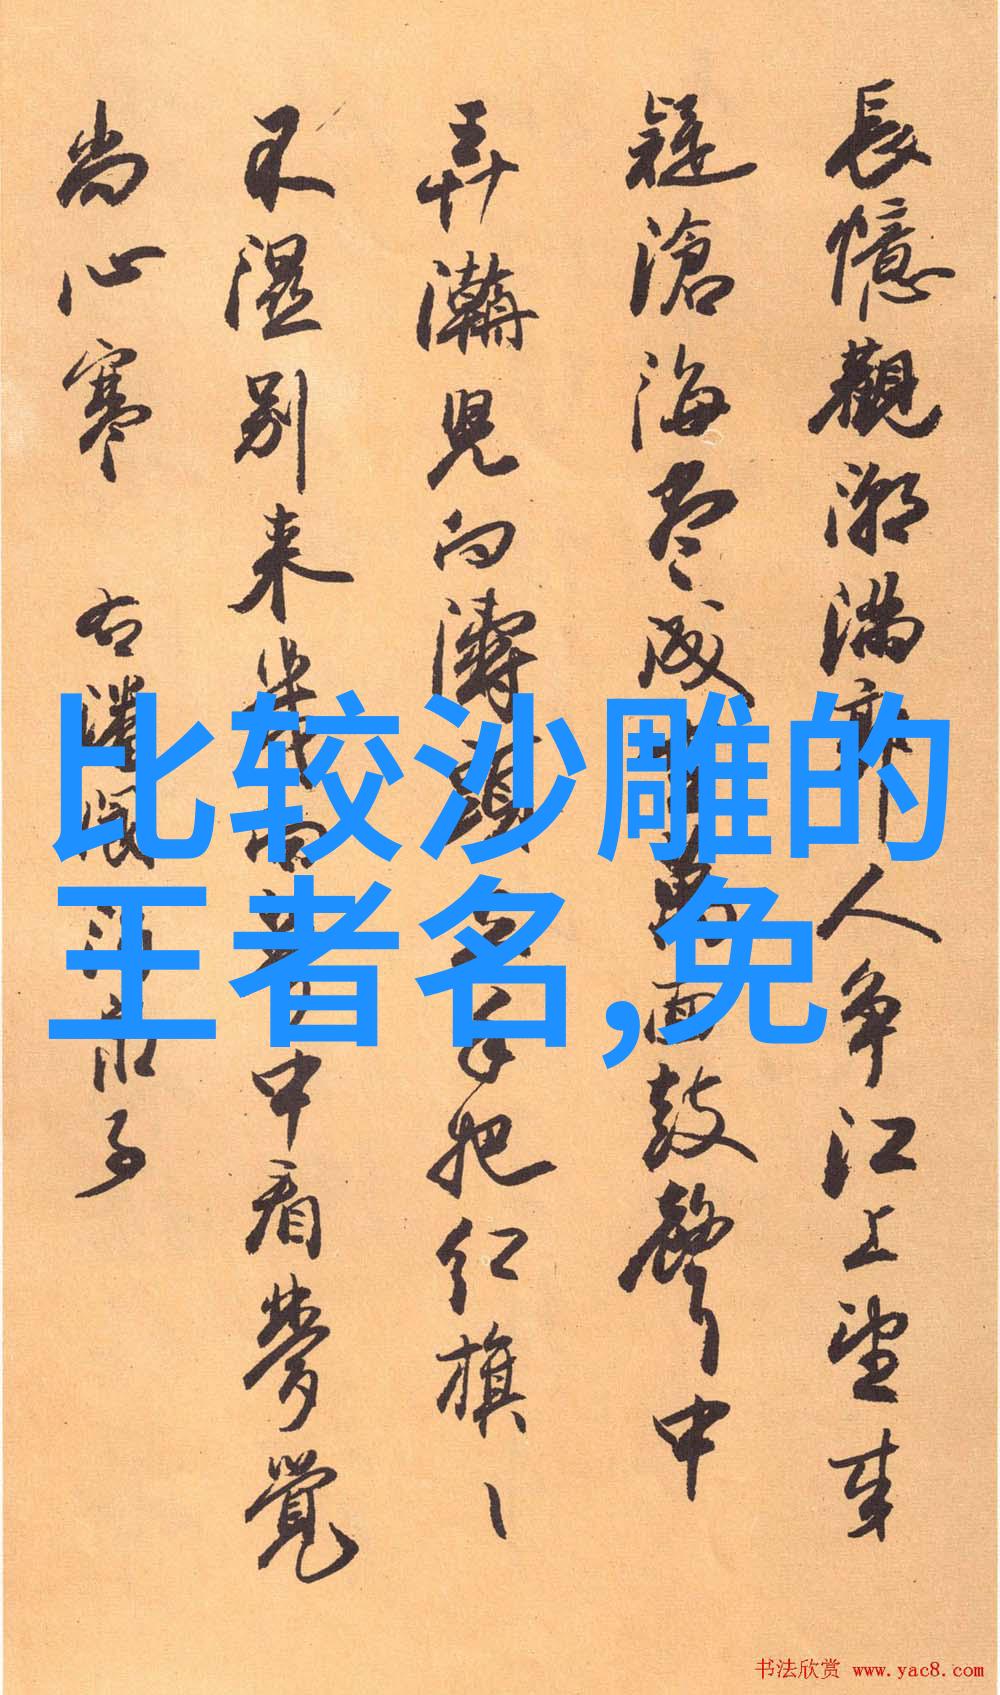 長憶觀潮滿郭人争江上望来
疑滄海盡成空萬面鼓聲中
弄濤兒向濤頭立手把红旗〻
不濕别来幾向夢中看夢覺
尚心寒 右潘閬酒泉子
比较沙雕的
王者名,免
书法欣赏 www.yac8.com